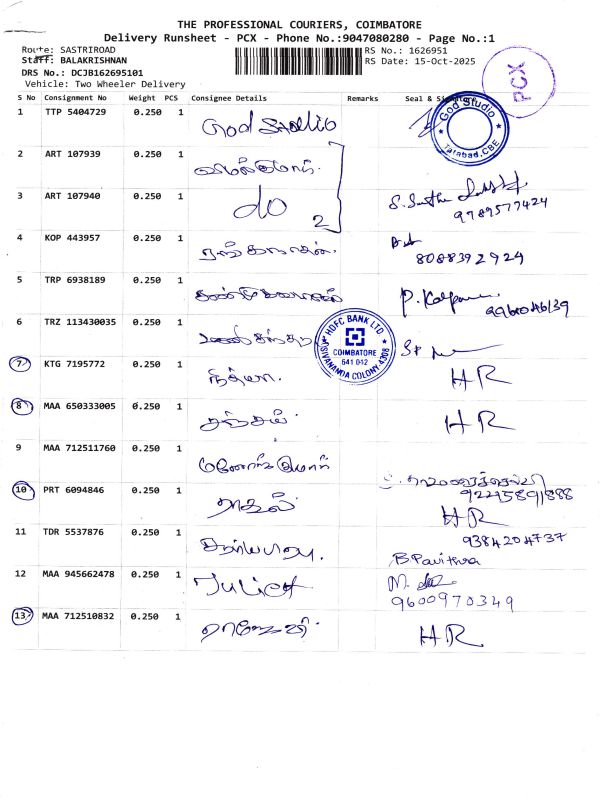 THE PROFESSIONAL COURIERS, COIMBATORE
Delivery Runsheet - PCX - Phone No.:9047080280 - Page No.:1
Route: SASTRIROAD
RS No.: 1626951
Staff: BALAKRISHNAN
RS Date: 15-Oct-2025
DRS No.: DCJB162695101
Vehicle: Two Wheeler Delivery
PCX
S No Consignment No Weight PCS Consignee Details Remarks Seal & Signature
1 TTP 5404729 0.250 1 God Studio
God Studio
Tatabad, CBE
2 ART 107939 0.250 1
3 ART 107940 0.250 1 do 2
9789577424
4 KOP 443957 0.250 1
8088392924
5 TRP 6938189 0.250 1 P. Kalpana
6 TRZ 113430035 0.250 1
HDFC BANK LTD
COIMBATORE
641 012
7 KTG 7195772 0.250 1 நித்யா. HR
8 MAA 650333005 0.250 1 சஞ்சய். HR
9 MAA 712511760 0.250 1
10 PRT 6094846 0.250 1 ராகுல் HR
9384204737
11 TDR 5537876 0.250 1 B Pavithra
12 MAA 945662478 0.250 1 Juliet M.
9600970349
13 MAA 712510832 0.250 1 HR